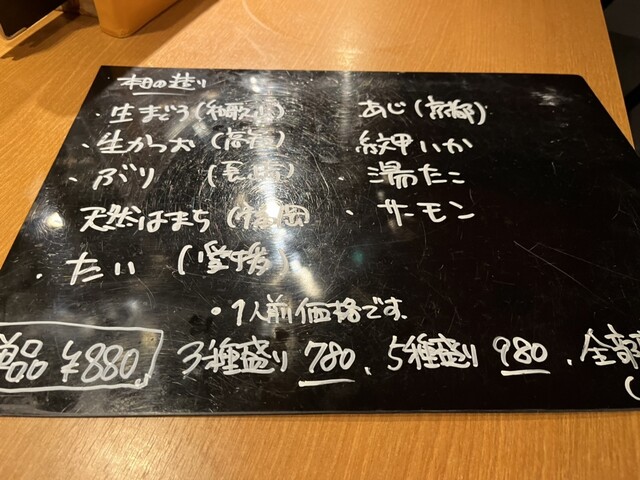 本日の造り
・生まぐろ(和歌山)
・生かつお
・ぶり (長崎)
天然はまち (福岡
・たい (愛媛)
あじ(京都)
紋甲いか
・湯たこ
・サーモン
・1人前価格です。
単品 ¥880
3種盛り 780、5種盛り 980、全部